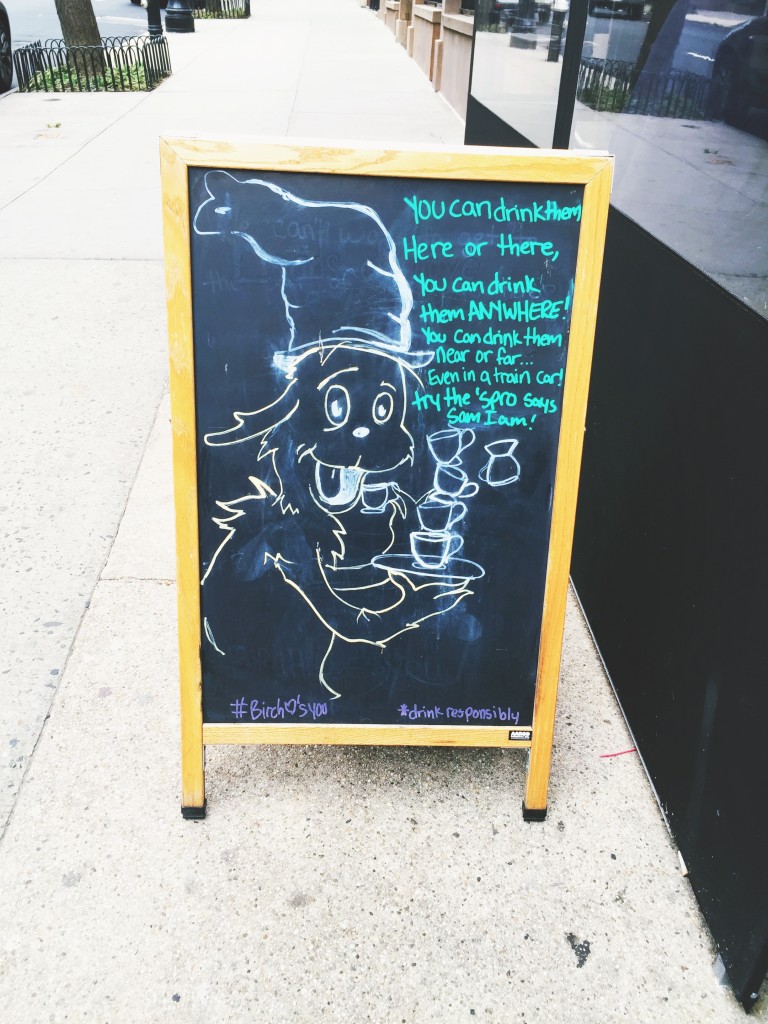 You can drink them
Here or there,
You can drink
them ANYWHERE!
You can drink them
near or far...
Even in a train car!
try the 'spro says
Sam I am!
#Birch♡'s you
*drink responsibly